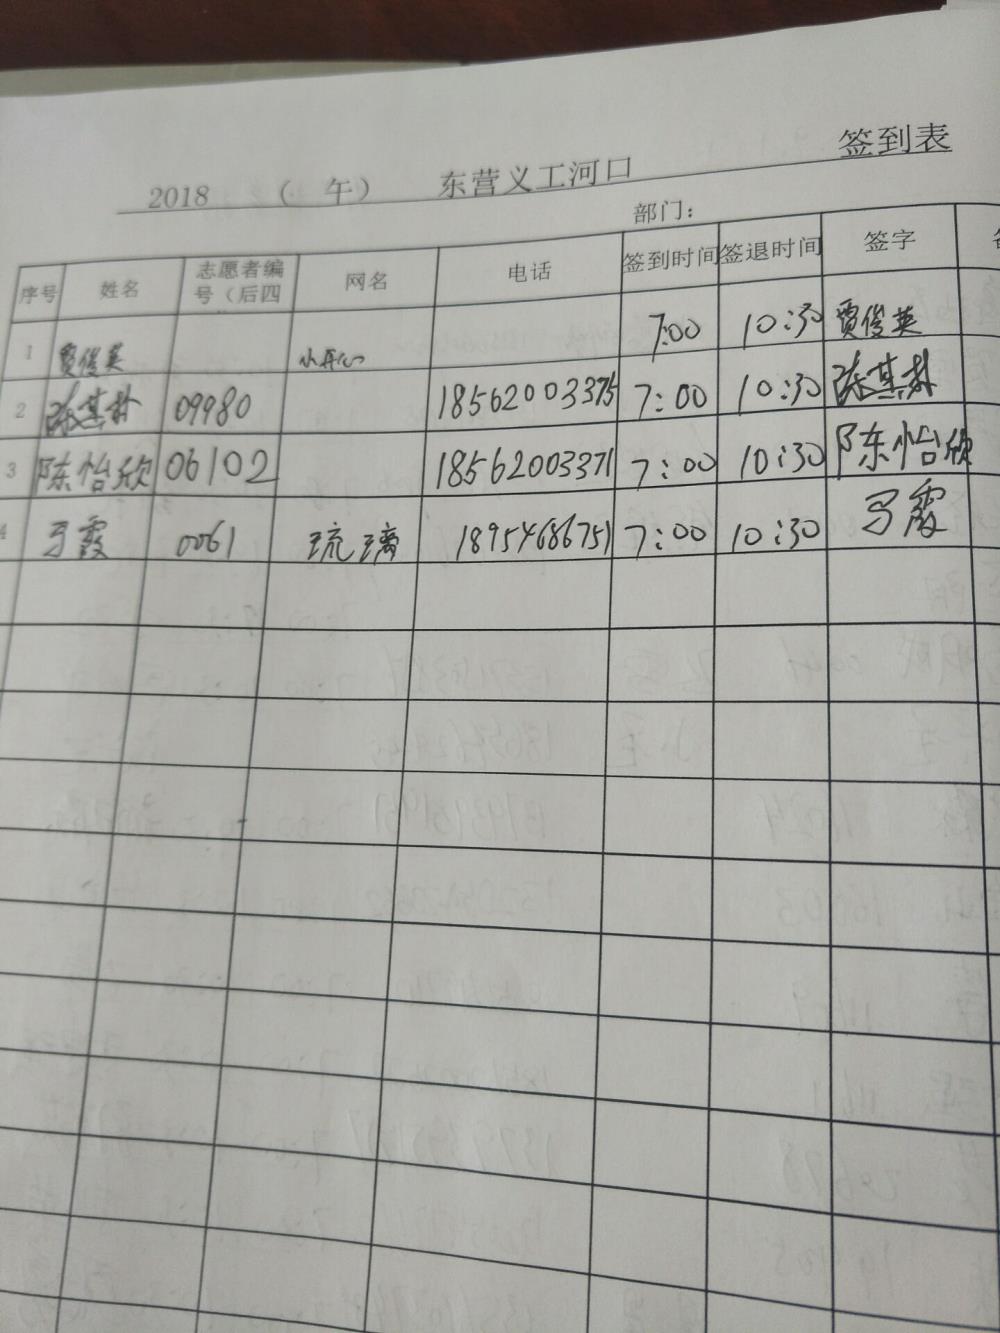 2018 （ 午） 东营义工河口 签到表
部门：
序号 姓名 志愿者编号（后四 网名 电话 签到时间 签退时间 签字
1 贾俊英 小开心 7:00 10:30 贾俊英
2 09980 18562003375 7:00 10:30
3 陈怡欣 06102 18562003371 7:00 10:30 陈怡欣
4 马霞 0061 琉璃 18954686751 7:00 10:30 马霞